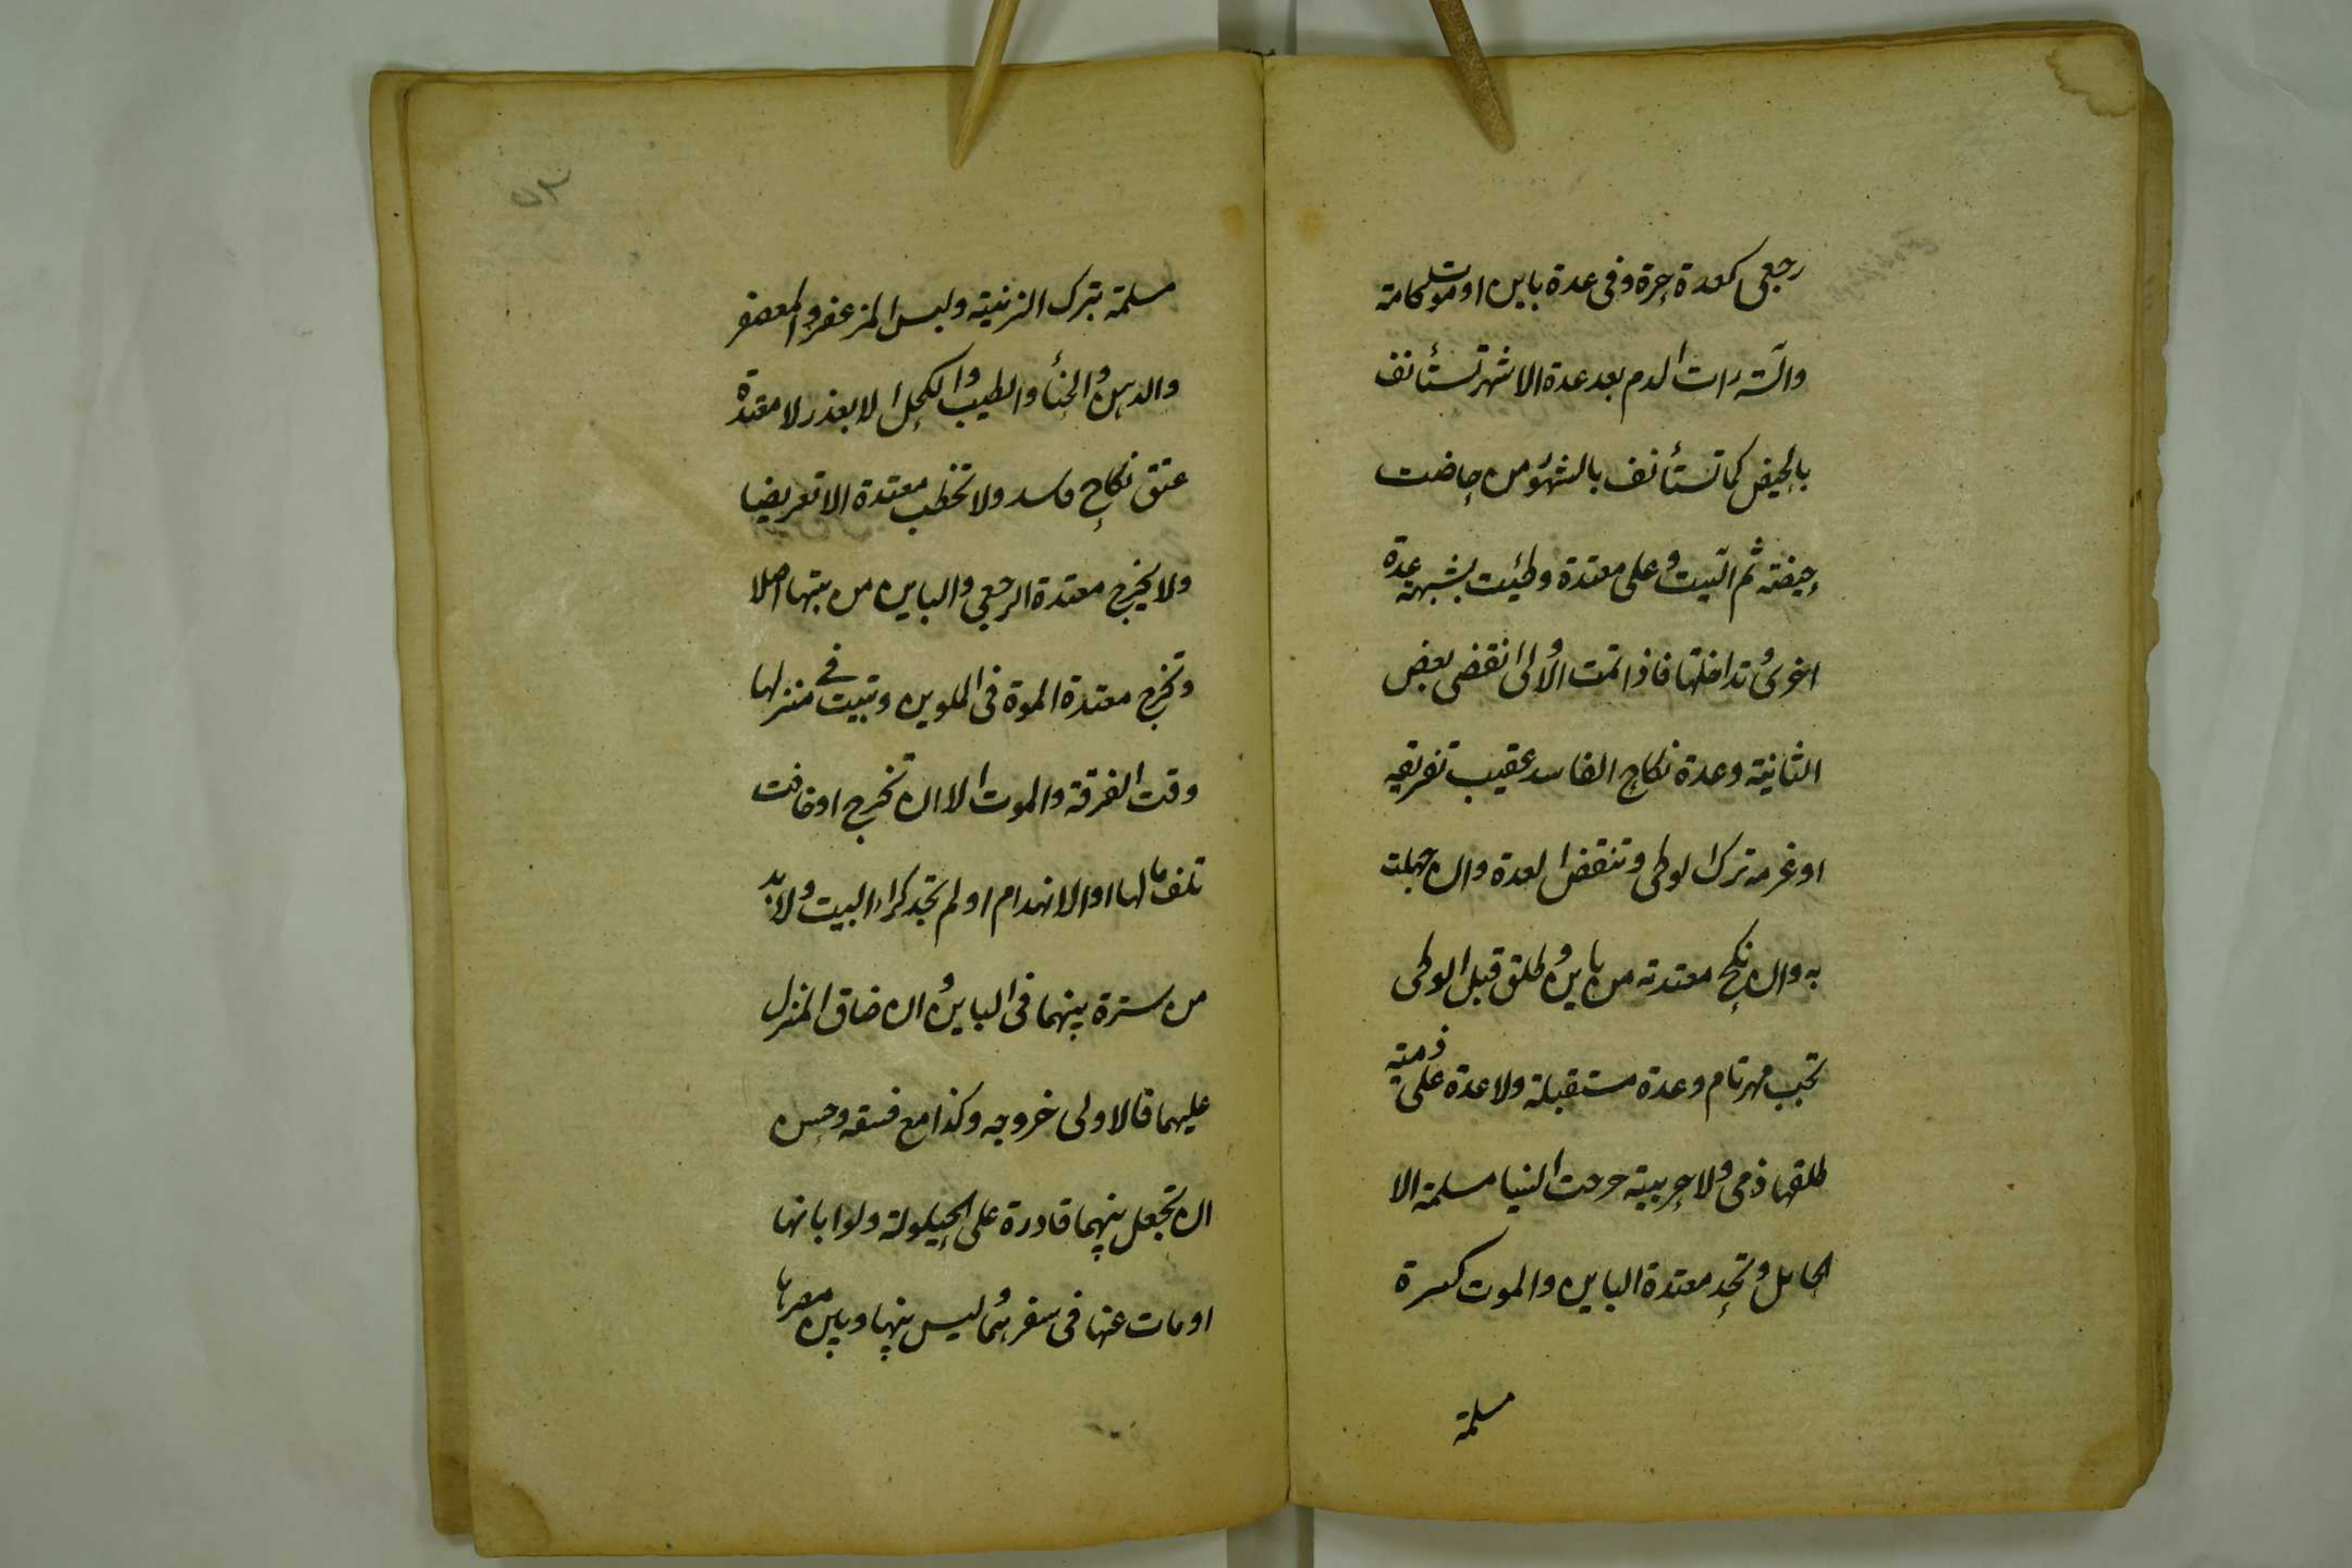 رجعى كعدة حرة وفى عدة باين او موت كامة
وآئسة رات الدم بعد عدة الاشهر تستأنف
بالحيض كما تستأنف بالشهور من حاضت
حيضة ثم ائيست وعلى معتدة وطئت بشبهة عدة
اخرى وتداخلتا فاذا تمت الاولى انقضى بعض
الثانية وعدة نكاح الفاسد عقيب تفريقه
او عزمه ترك الوطى وتنقضى العدة وان جهلت
به وان نكح معتدته من باين وطلق قبل الوطى
تجب مهر تام وعدة مستقبلة ولا عدة على ذمية
طلقها ذمى ولا حربية خرجت الينا مسلمة الا
الحامل وتحد معتدة الباين والموت كبيرة
مسلمة
مسلمة بترك الزينة ولبس المزعفر والمعصفر
والدهن والحنأ والطيب والكحل الا بعذر لا معتدة
عتق نكاح فاسد ولا تخطب معتدة الا تعريضا
ولا يخرج معتدة الرجعى والباين من بيتها اصلا
وتخرج معتدة الموة فى الملوين وتبيت فى منزلها
وقت الفرقة والموت الا ان تخرج او خافت
تلف مالها او الانهدام او لم تجد كراء البيت ولا بد
من سترة بينهما فى الباين وان ضاق المنزل
عليهما فالاولى خروجه وكذا مع فسقه وحسن
ان تجعل بينهما قادرة على الحيلولة ولو ابانها
او مات عنها فى سفرهما ليس بينها وبين مصرها